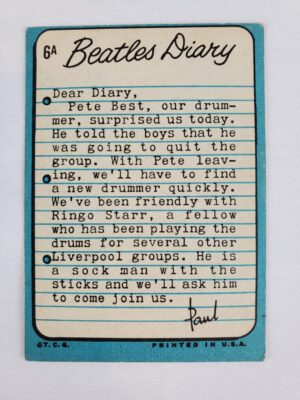 6A Beatles Diary
Dear Diary,
Pete Best, our drum-
mer, surprised us today.
He told the boys that he
was going to quit the
group. With Pete leav-
ing, we'll have to find
a new drummer quickly.
We've been friendly with
Ringo Starr, a fellow
who has been playing the
drums for several other
Liverpool groups. He is
a sock man with the
sticks and we'll ask him
to come join us.
Paul
©T.C.G. PRINTED IN U.S.A.